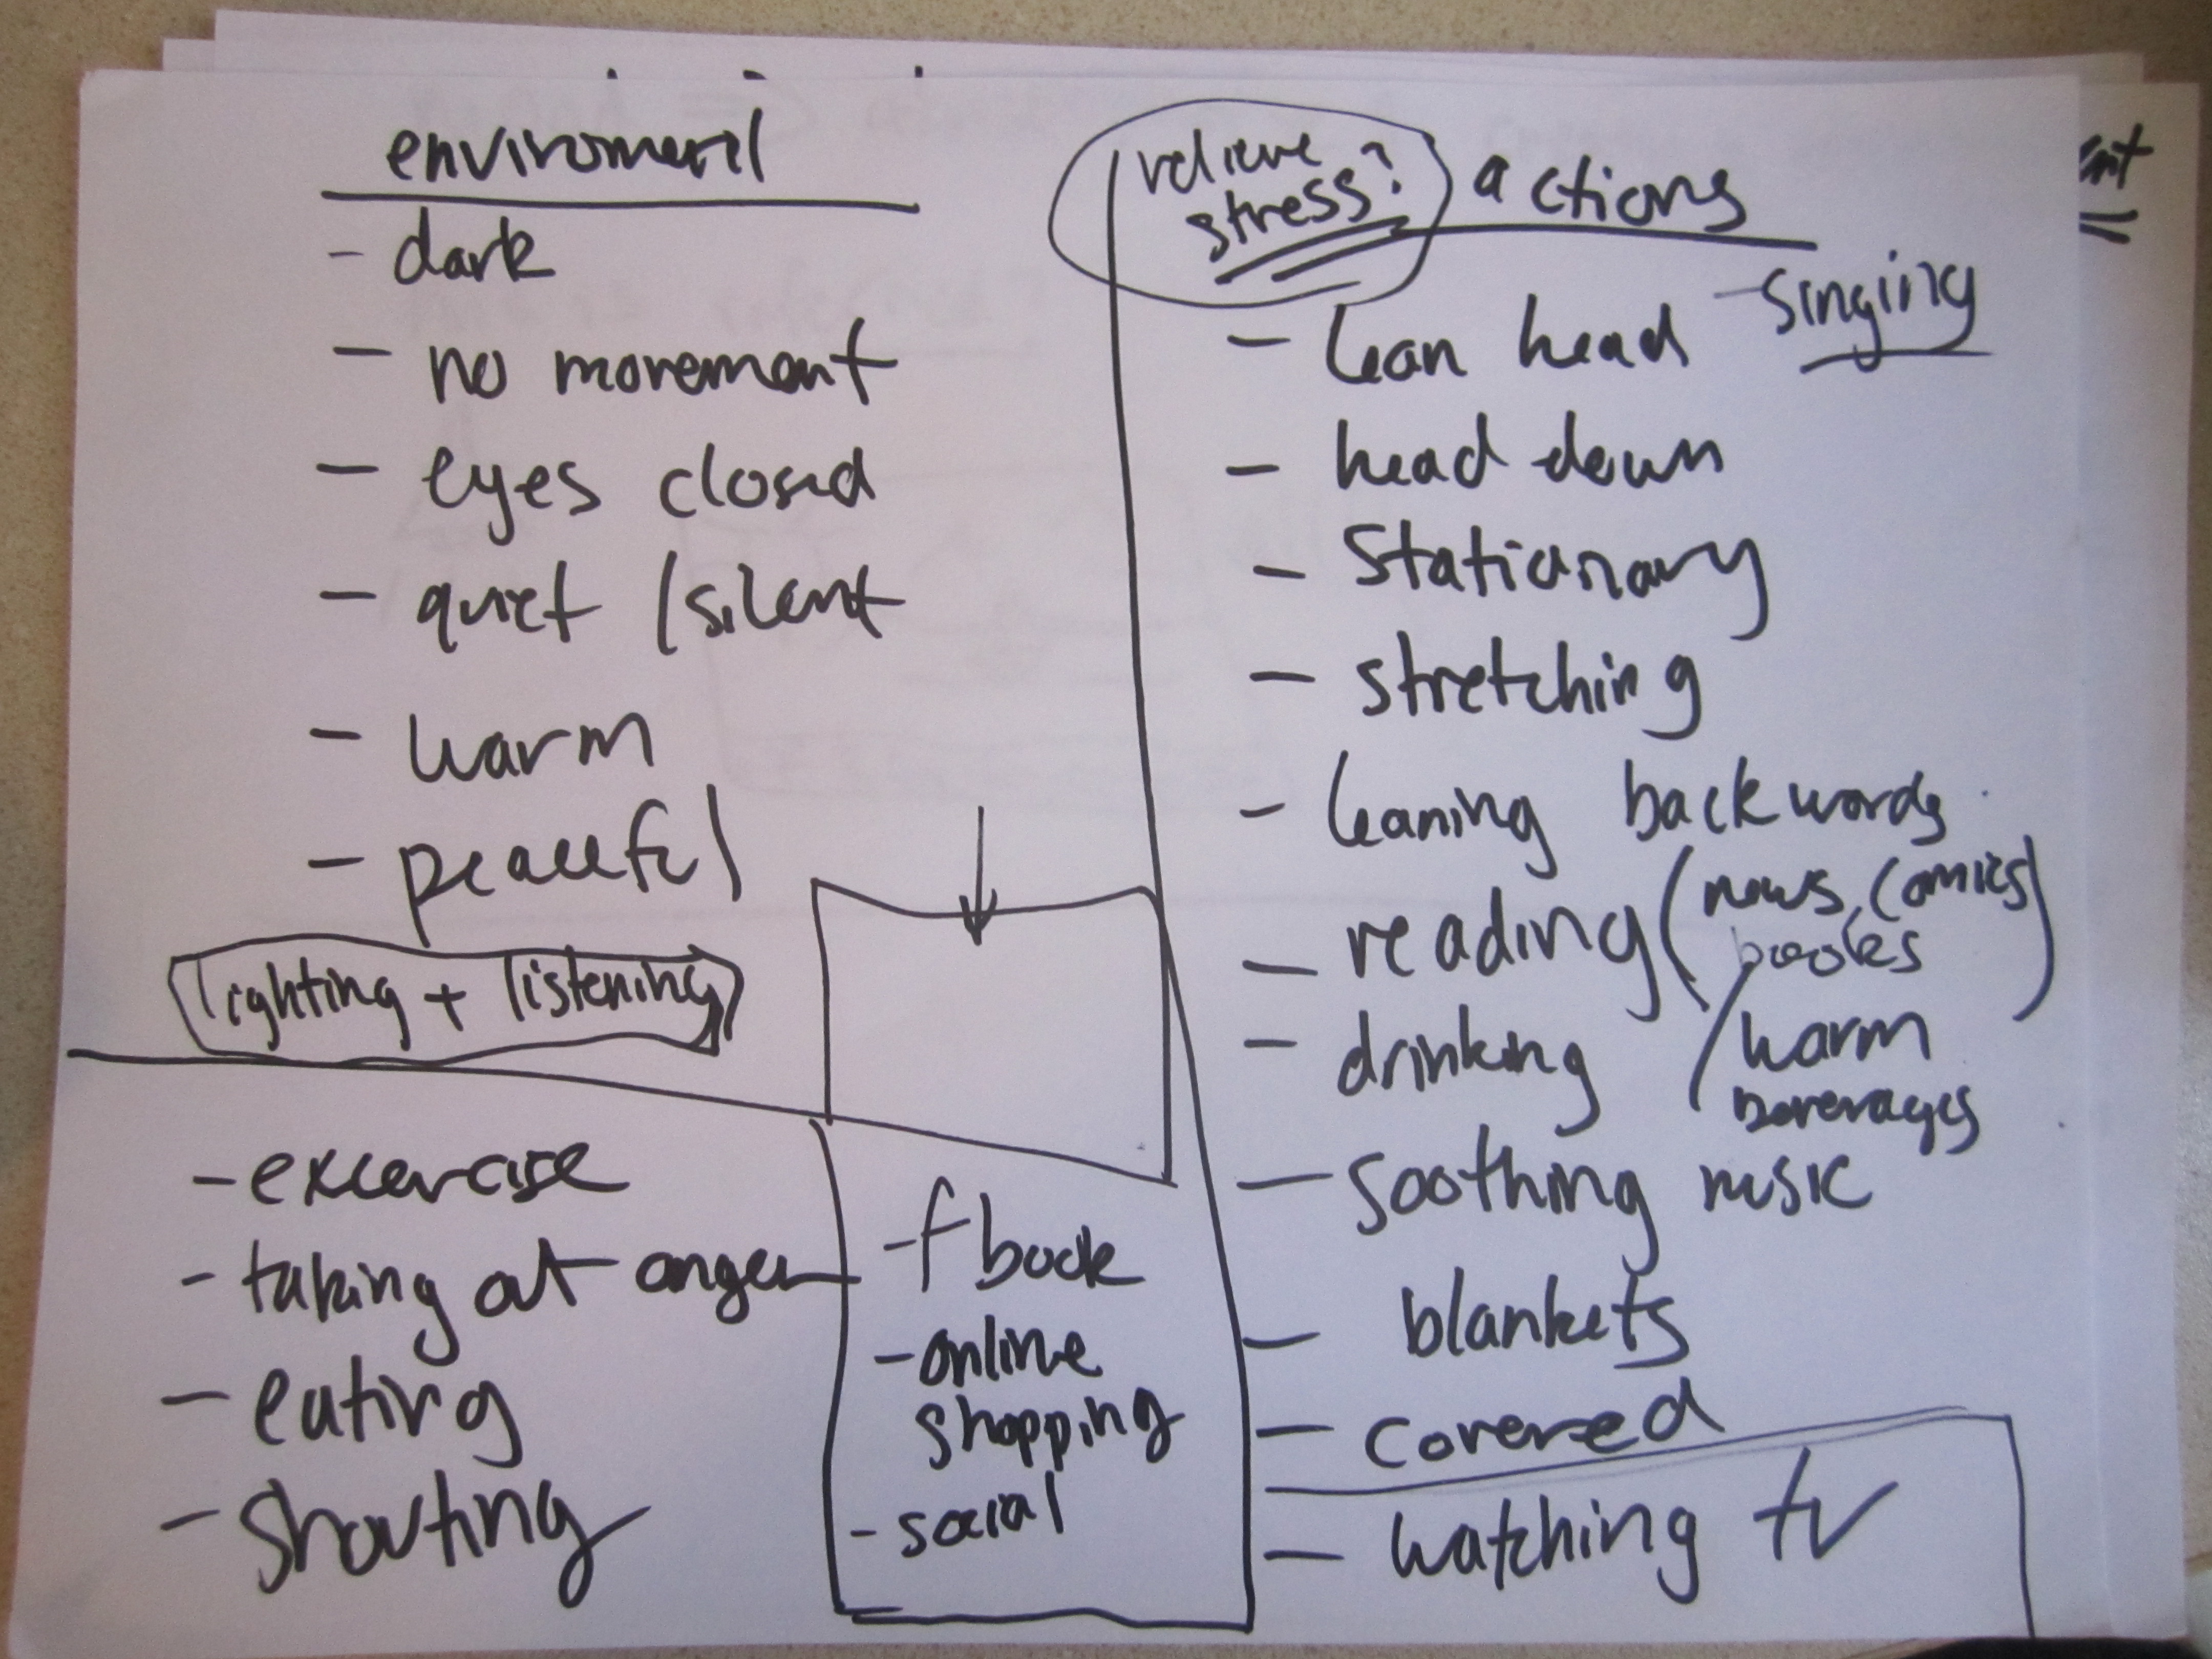 enviroment
- dark
- no movement
- eyes closed
- quiet / silent
- warm
- peaceful
lighting + listening
- excercise
- taking out anger
- eating
- shouting
- fbook
- online
shopping
- social
relieve
stress?
actions
- singing
- lean head
- head down
- stationary
- stretching
- leaning backwords
- reading (news, comics)
books
- drinking / warm
beverages
- soothing music
- blankets
- covered
- watching tv